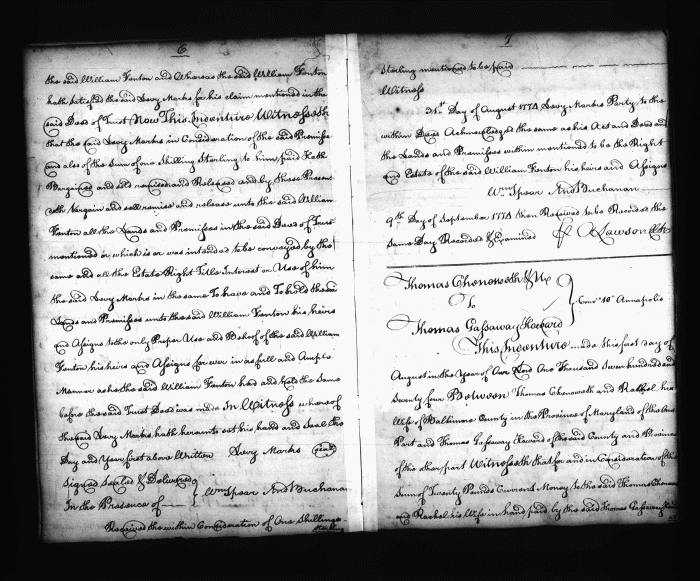 6
the said William Fenton and Whereas the said William Fenton
hath satisfied the said Levy Marks for his claim mentioned in the
said Deed of Trust Now This Indenture Witnesseth
that the said Levy Marks in Consideration of the said Premises
and also of the Sum of one Shilling Sterling to him paid Hath
Bargained and sold remised and Released and by these Presents
doth bargain and sell remise and release unto the said William
Fenton all the Lands and Premisses in the said Deed of Trust
mentioned or which is or was intended to be conveyed by the
same and all the Estate Right Title Interest or Use of him
the said Levy Marks in the same To have and To hold the said
Lands and Premisses unto the said William Fenton his heirs
and Assigns to the only Proper Use and Behoof of the said William
Fenton his heirs and Assigns for ever in as full and Ample
Manner as he the said William Fenton had and held the same
before the said Trust Deed was made In Witness whereof
the said Levy Marks hath hereunto set his hand and Seal the
Day and Year first above Written Levy Marks (Seal)
Signed Sealed & Delivered
In the Presence of
Wm Spear And Buchanan
Received the within Consideration of One Shilling
Sterling
7
Sterling mentioned to be paid
Witness
31st Day of August 1774 Levy Marks Party to the
within Deed Acknowledged the same as his Act and Deed and
the Lands and Premisses within mentioned to be the Right
and Estate of the said William Fenton his heirs and Assigns
Wm Spear And Buchanan
9th Day of September 1774 then Received to be Recorded the
same Day Recorded & Examined A Lawson Clk
Thomas Chenoweth & Ux
To
Thomas Gassaway Howard
Annapolis
This Indenture made this first day of
August in the Year of Our Lord One Thousand Seven hundred and
Seventy four Between Thomas Chenoweth and Rachel his
Wife of Baltimore County in the Province of Maryland of the One
Part and Thomas Gassaway Howard of the said County and Province
of the other part Witnesseth that for and in Consideration of the
Sum of Twenty Pounds Current Money to the said Thomas Chenoweth
and Rachel his Wife in hand paid by the said Thomas Gassaway Howard